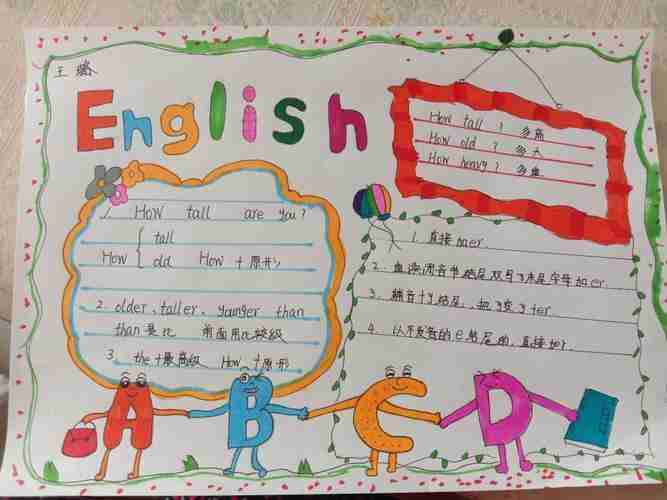 王
English
How tall ? 多高
How old ? 多大
How heavy? 多重
1. How tall are you?
tall
How { old How + 原形
2. older、taller、younger than
than是比 前面用比较级
3. the +最高级 How +原形
1. 直接加er
2. 结尾双写末尾字母加er
3. 辅音+y结尾、把y变i+er
4. 以不发音的e结尾的，直接加r.
A B C D